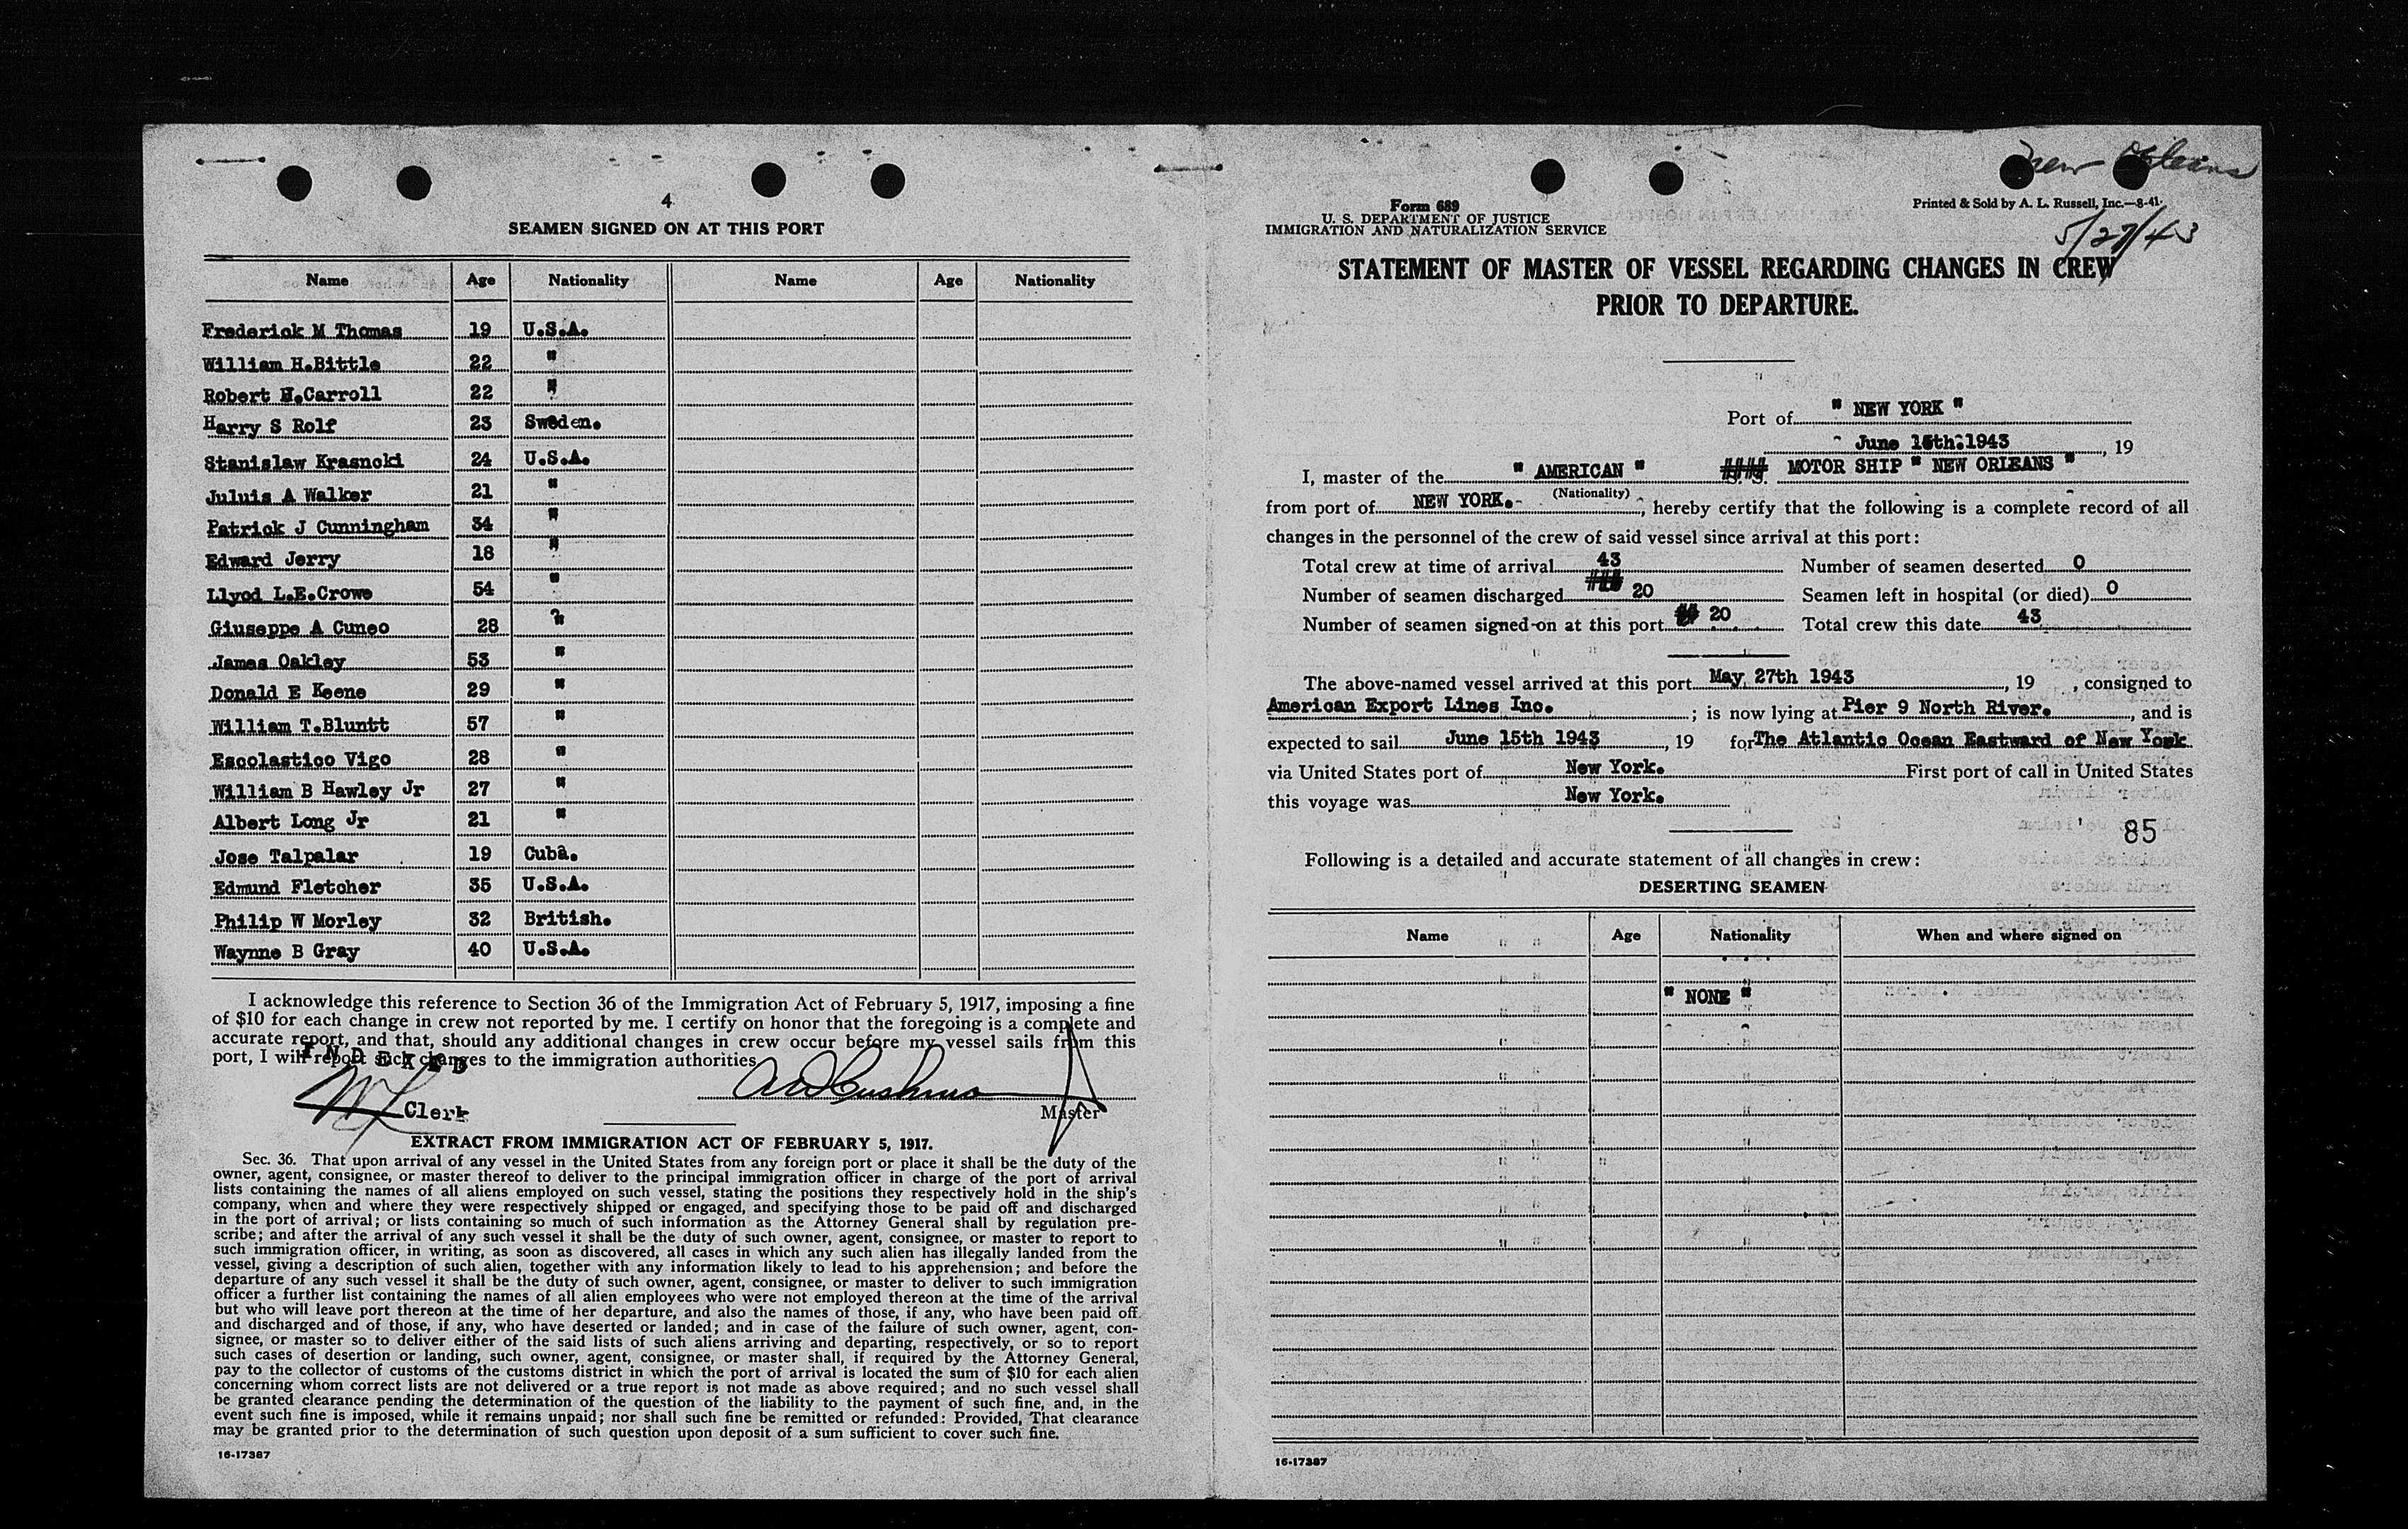 4
SEAMEN SIGNED ON AT THIS PORT
Name Age Nationality Name Age Nationality
Frederick M Thomas 19 U.S.A.
William H.Bittle 22 "
Robert H.Carroll 22 "
Harry S Rolf 23 Sweden.
Stanislaw Krasnoki 24 U.S.A.
Juluis A Walker 21 "
Patrick J Cunningham 34 "
Edward Jerry 18 "
Llyod L.E.Crowe 54 "
Giuseppe A Cuneo 28 "
James Oakley 53 "
Donald E Keene 29 "
William T.Bluntt 57 "
Escolastico Vigo 28 "
William B Hawley Jr 27 "
Albert Long Jr 21 "
Jose Talpalar 19 Cuba.
Edmund Fletcher 35 U.S.A.
Philip W Morley 32 British.
Waynne B Gray 40 U.S.A.
I acknowledge this reference to Section 36 of the Immigration Act of February 5, 1917, imposing a fine
of $10 for each change in crew not reported by me. I certify on honor that the foregoing is a complete and
accurate report, and that, should any additional changes in crew occur before my vessel sails from this
port, I will report such changes to the immigration authorities
INDEXED
Clerk
Master
EXTRACT FROM IMMIGRATION ACT OF FEBRUARY 5, 1917.
Sec. 36. That upon arrival of any vessel in the United States from any foreign port or place it shall be the duty of the
owner, agent, consignee, or master thereof to deliver to the principal immigration officer in charge of the port of arrival
lists containing the names of all aliens employed on such vessel, stating the positions they respectively hold in the ship's
company, when and where they were respectively shipped or engaged, and specifying those to be paid off and discharged
in the port of arrival; or lists containing so much of such information as the Attorney General shall by regulation pre-
scribe; and after the arrival of any such vessel it shall be the duty of such owner, agent, consignee, or master to report to
such immigration officer, in writing, as soon as discovered, all cases in which any such alien has illegally landed from the
vessel, giving a description of such alien, together with any information likely to lead to his apprehension; and before the
departure of any such vessel it shall be the duty of such owner, agent, consignee, or master to deliver to such immigration
officer a further list containing the names of all alien employees who were not employed thereon at the time of the arrival
but who will leave port thereon at the time of her departure, and also the names of those, if any, who have been paid off
and discharged and of those, if any, who have deserted or landed; and in case of the failure of such owner, agent, con-
signee, or master so to deliver either of the said lists of such aliens arriving and departing, respectively, or so to report
such cases of desertion or landing, such owner, agent, consignee, or master shall, if required by the Attorney General,
pay to the collector of customs of the customs district in which the port of arrival is located the sum of $10 for each alien
concerning whom correct lists are not delivered or a true report is not made as above required; and no such vessel shall
be granted clearance pending the determination of the question of the liability to the payment of such fine, and, in the
event such fine is imposed, while it remains unpaid; nor shall such fine be remitted or refunded: Provided, That clearance
may be granted prior to the determination of such question upon deposit of a sum sufficient to cover such fine.
16-17387
New Orleans
Form 689
U. S. DEPARTMENT OF JUSTICE
IMMIGRATION AND NATURALIZATION SERVICE
Printed & Sold by A. L. Russell, Inc.—8-41
5/27/43
STATEMENT OF MASTER OF VESSEL REGARDING CHANGES IN CREW
PRIOR TO DEPARTURE.
Port of " NEW YORK "
June 15th.1943, 19
I, master of the " AMERICAN " MOTOR SHIP " NEW ORLEANS "
(Nationality)
from port of NEW YORK.-, hereby certify that the following is a complete record of all
changes in the personnel of the crew of said vessel since arrival at this port:
Total crew at time of arrival 43 Number of seamen deserted 0
Number of seamen discharged 20 Seamen left in hospital (or died) 0
Number of seamen signed-on at this port 20 Total crew this date 43
The above-named vessel arrived at this port May, 27th 1943, 19 , consigned to
American Export Lines Inc. ; is now lying at Pier 9 North River. , and is
expected to sail June 15th 1943, 19 for The Atlantic Ocean Eastward of New York
via United States port of New York. First port of call in United States
this voyage was New York.
85
Following is a detailed and accurate statement of all changes in crew:
DESERTING SEAMEN
Name Age Nationality When and where signed on
" NONE "
16-17387